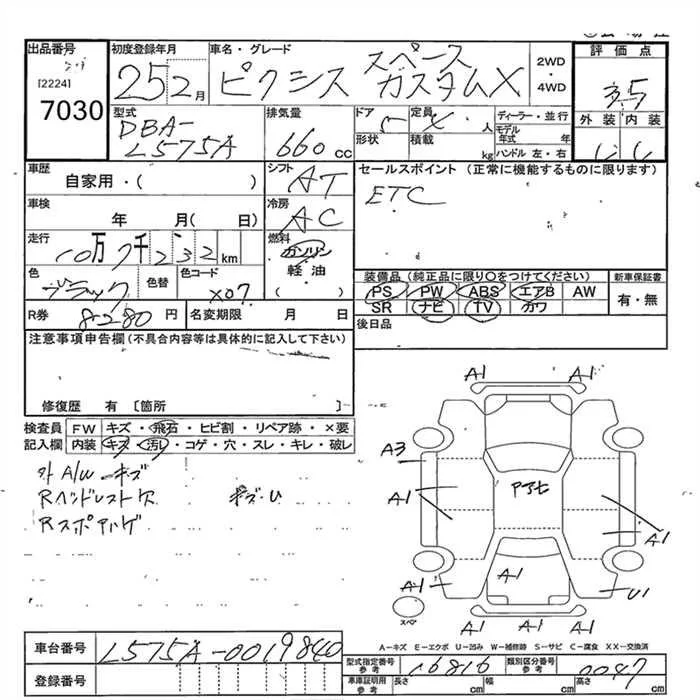 出品番号
[2224]
7030
初度登録年月
25 2月
車名・グレード
ピクシス スペース カスタムX
2WD
・
4WD
評価点
3.5
外装 内装
C C
型式
DBA-
L575A
排気量
660 cc
ドア 5
形状
定員 4 人
積載 kg
ディーラー・並行
モデル年式 年
ハンドル 左・右
車歴
自家用・( )
シフト
AT
セールスポイント (正常に機能するものに限ります)
ETC
車検
年 月( 日)
冷房
AC
走行
10万7千232km
燃料
ガソリン
軽油
( )
色
ブラック
色替
色コード
X07
装備品 (純正品に限り○をつけてください)
PS PW ABS エアB AW
SR ナビ TV カワ
新車保証書
有・無
R券
8280円
名変期限 月 日
後日品
注意事項申告欄 (不具合内容等は具体的に記入して下さい)
修復歴 有 [箇所 ]
検査員記入欄
FW キズ・飛石・ヒビ割・リペア跡・×要
内装 キズ・汚れ・コゲ・穴・スレ・キレ・破レ
外 A/W キズ
Rヘッドレスト欠
キズ・U
Rスポハゲ
A1
A1
A3
A1
A1
A1
A1
U1
A1
A1
スペア
A-キズ E-エクボ U-凹み W-補修跡 S-サビ C-腐食 XX-交換済
車台番号
L575A-0019840
登録番号
型式指定番号
参考
16816
類別区分番号
参考
0047
車庫証明用
参考
長さ cm
幅 cm
高さ cm